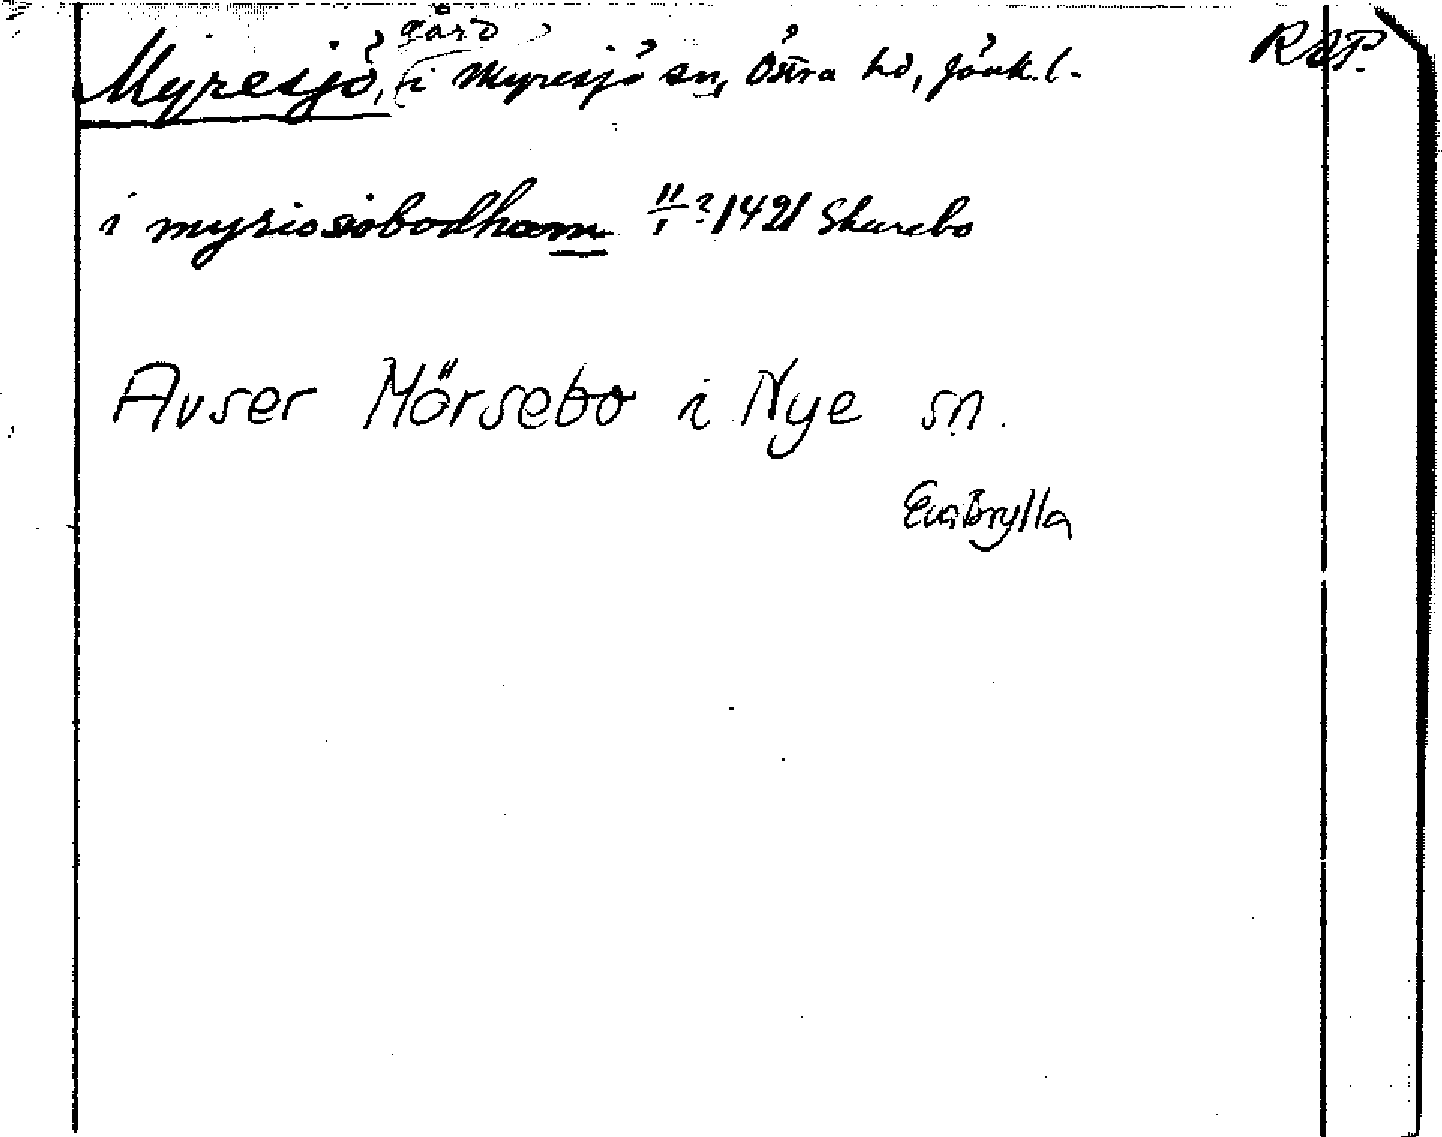 Myresjö, gård i Myresjö sn, Östra hd, Jönk. l.
RAP.
i myriosiobodham 11/1 ? 1421 Skurebo
Avser Mörsebo i Nye sn.
Eva Brylla